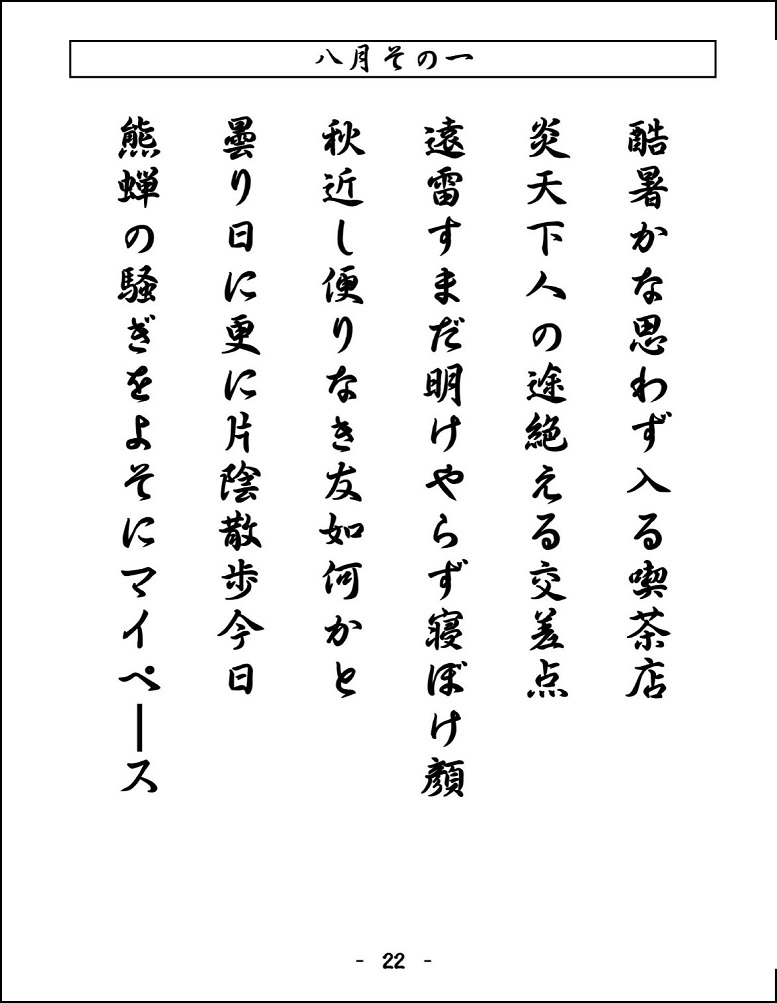 八月その一
酷暑かな思わず入る喫茶店
炎天下人の途絶える交差点
遠雷すまだ明けやらず寝ぼけ顔
秋近し便りなき友如何かと
曇り日に更に片陰散歩今日
熊蝉の騒ぎをよそにマイペース
- 22 -